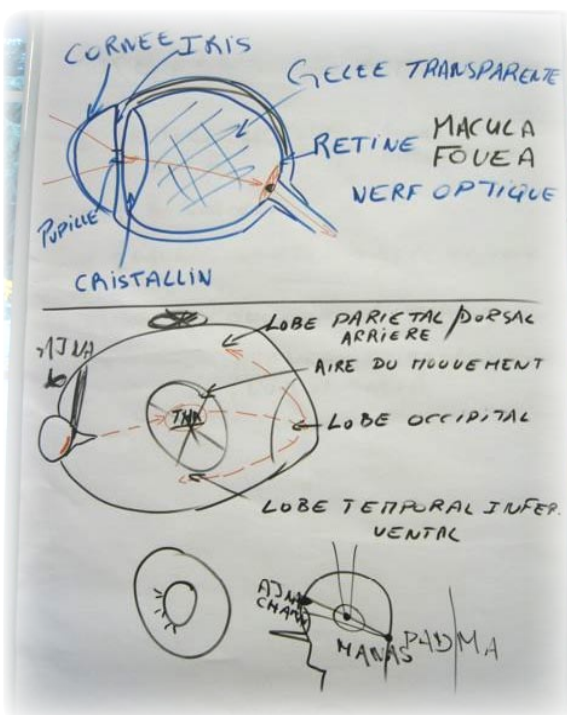 CORNEE IRIS
GELEE TRANSPARENTE
RETINE MACULA
FOVEA
NERF OPTIQUE
PUPILLE
CRISTALLIN
LOBE PARIETAL/DORSAL
ARRIERE
AJNA
AIRE DU MOUVEMENT
LOBE OCCIPITAL
LOBE TEMPORAL INFER.
VENTAL
AJNA
MANAS
PADMA